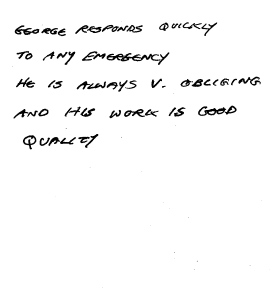 GEORGE RESPONDS QUICKLY
TO ANY EMERGENCY
HE IS ALWAYS V. OBLIGING
AND HIS WORK IS GOOD
QUALITY